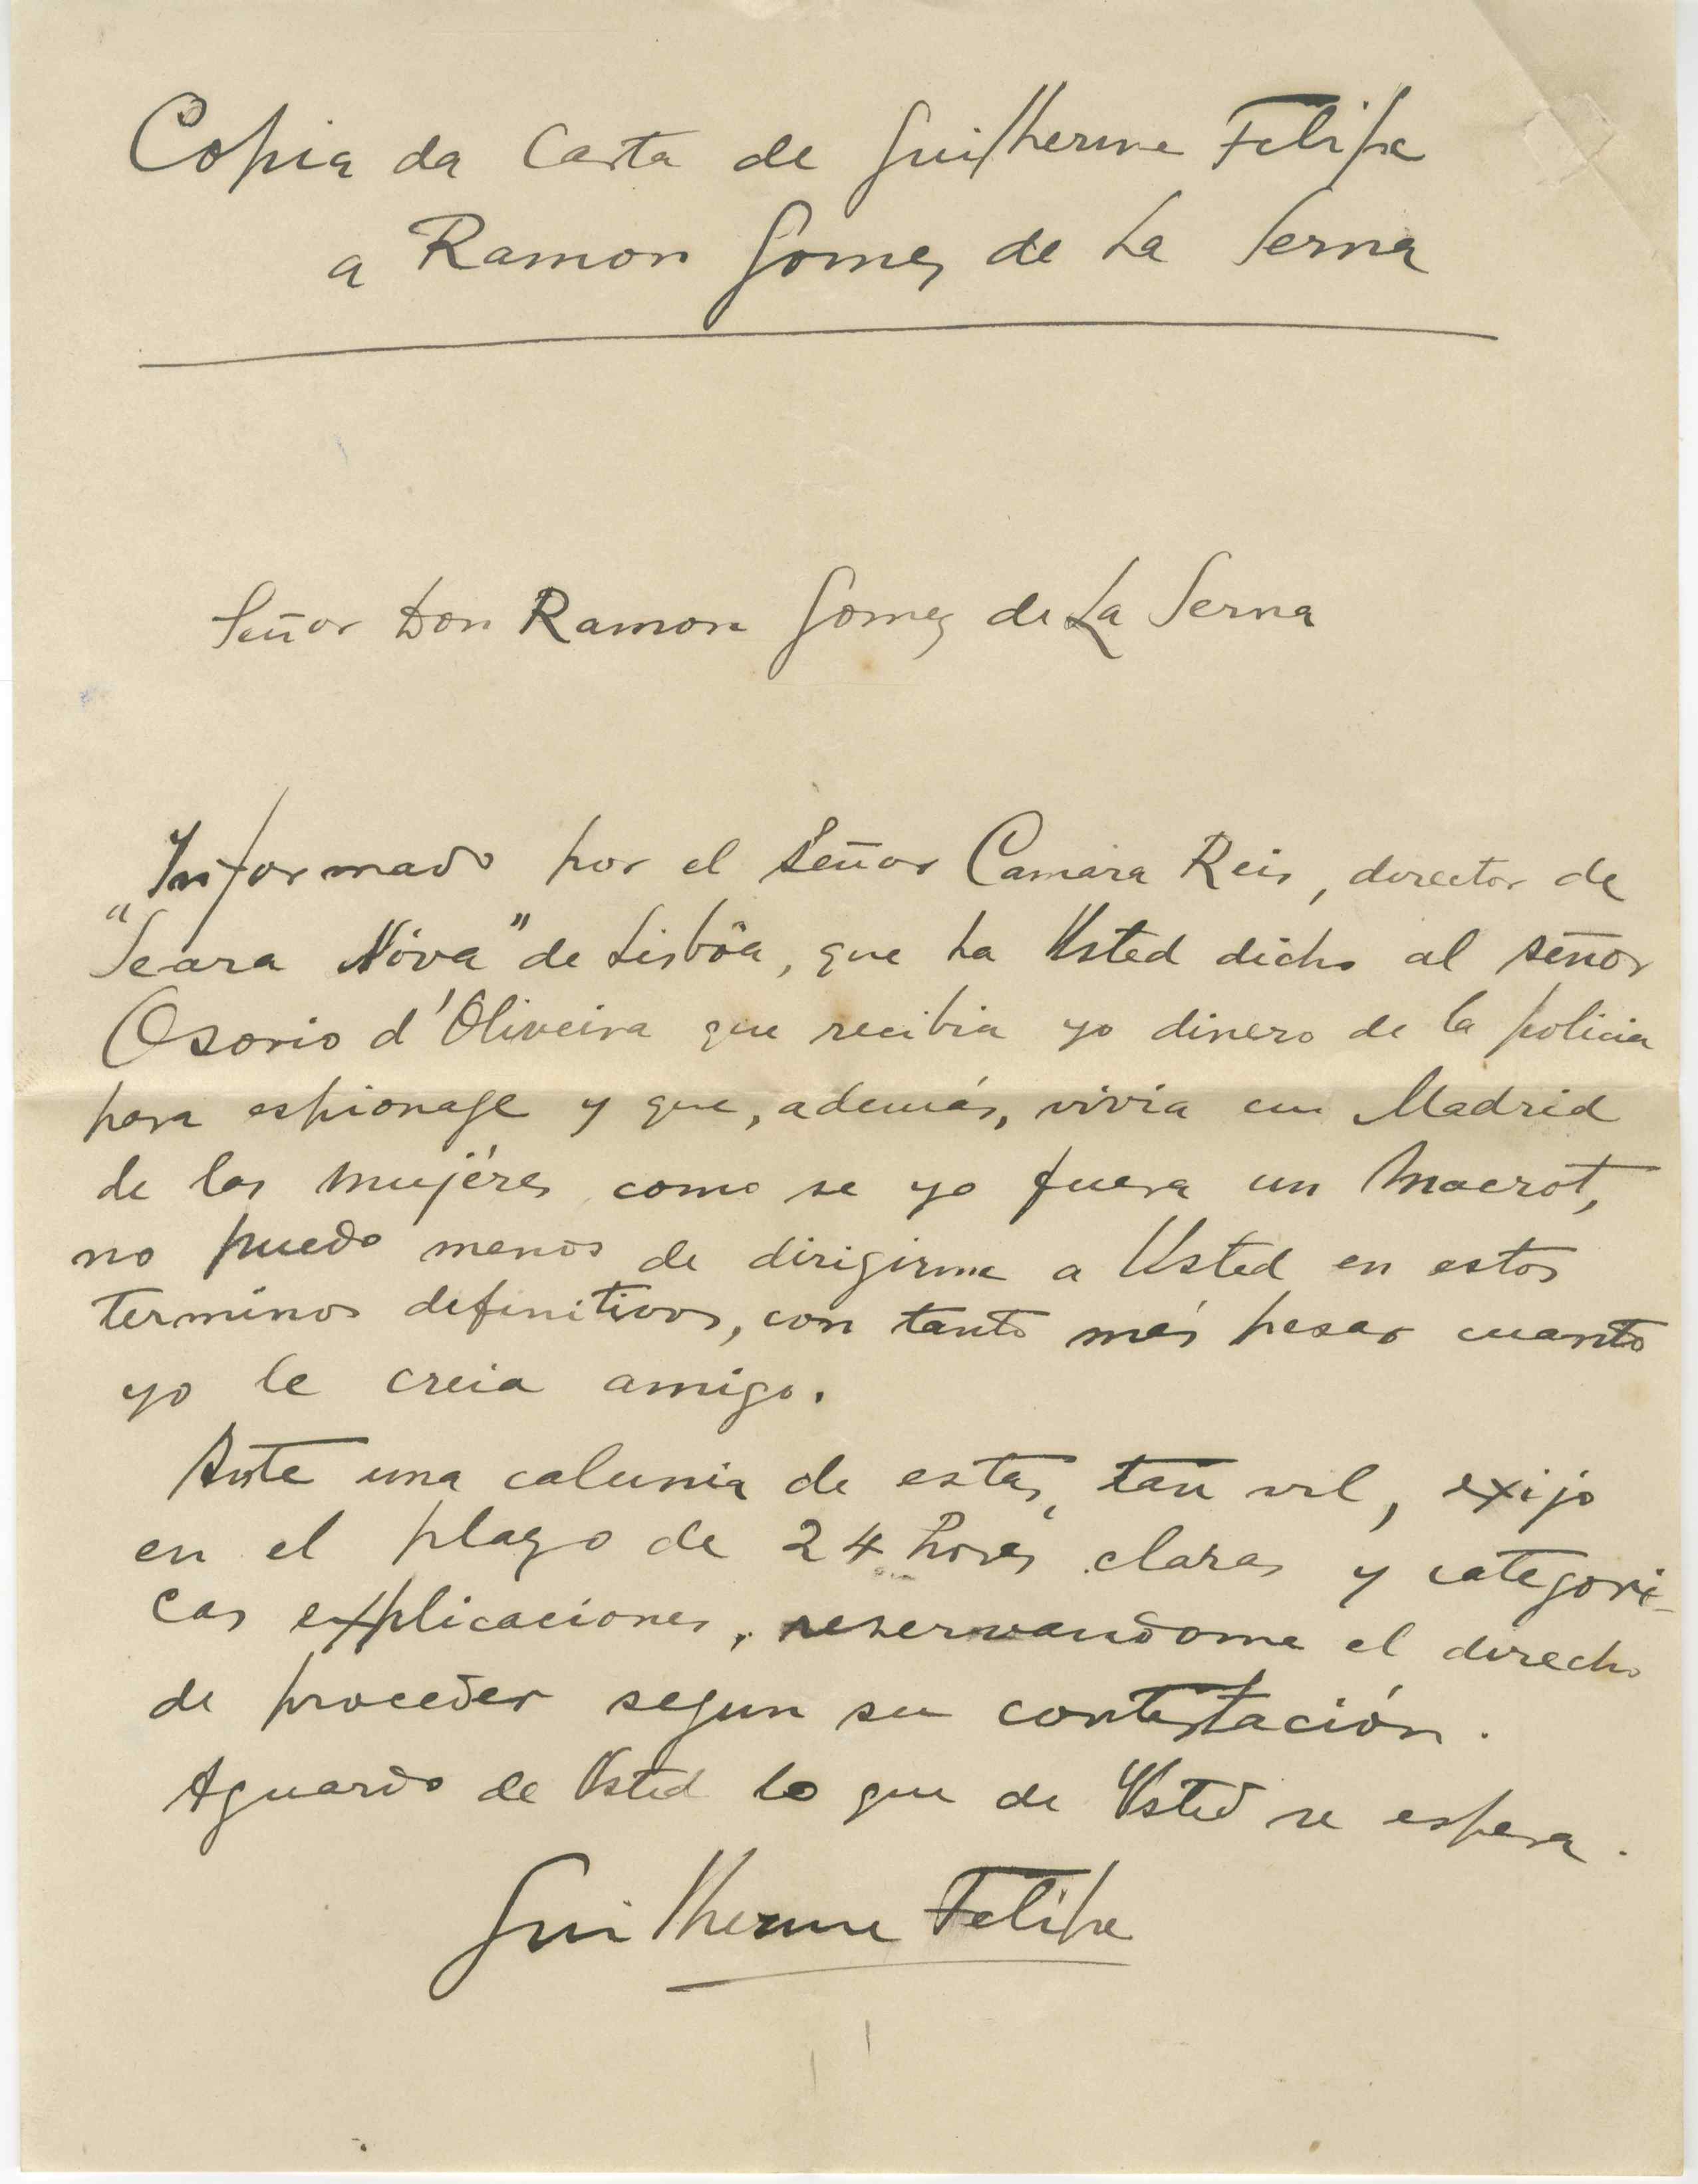 Copia da Carta de Guilherme Felipe
a Ramon Gomez de La Serna
Señor Don Ramon Gomez de La Serna
Informado por el Señor Camara Reis, director de
"Seara Nóva" de Lisbôa, que ha Usted dicho al señor
Osorio d'Oliveira que recibia yo dinero de la policia
para espionage y que, además, vivia en Madrid
de las mujéres como se yo fuera un Macrot,
no puedo menos de dirigirme a Usted en estos
terminos definitivos, con tanto más pesar cuanto
yo le creia amigo.
Ante una calunia de estas, tan vil, exijo
en el plazo de 24 horas claras y categori-
cas explicaciones, reservandome el derecho
de proceder segun su contestación.
Aguardo de Usted lo que de Usted se espera.
Guilherme Felipe